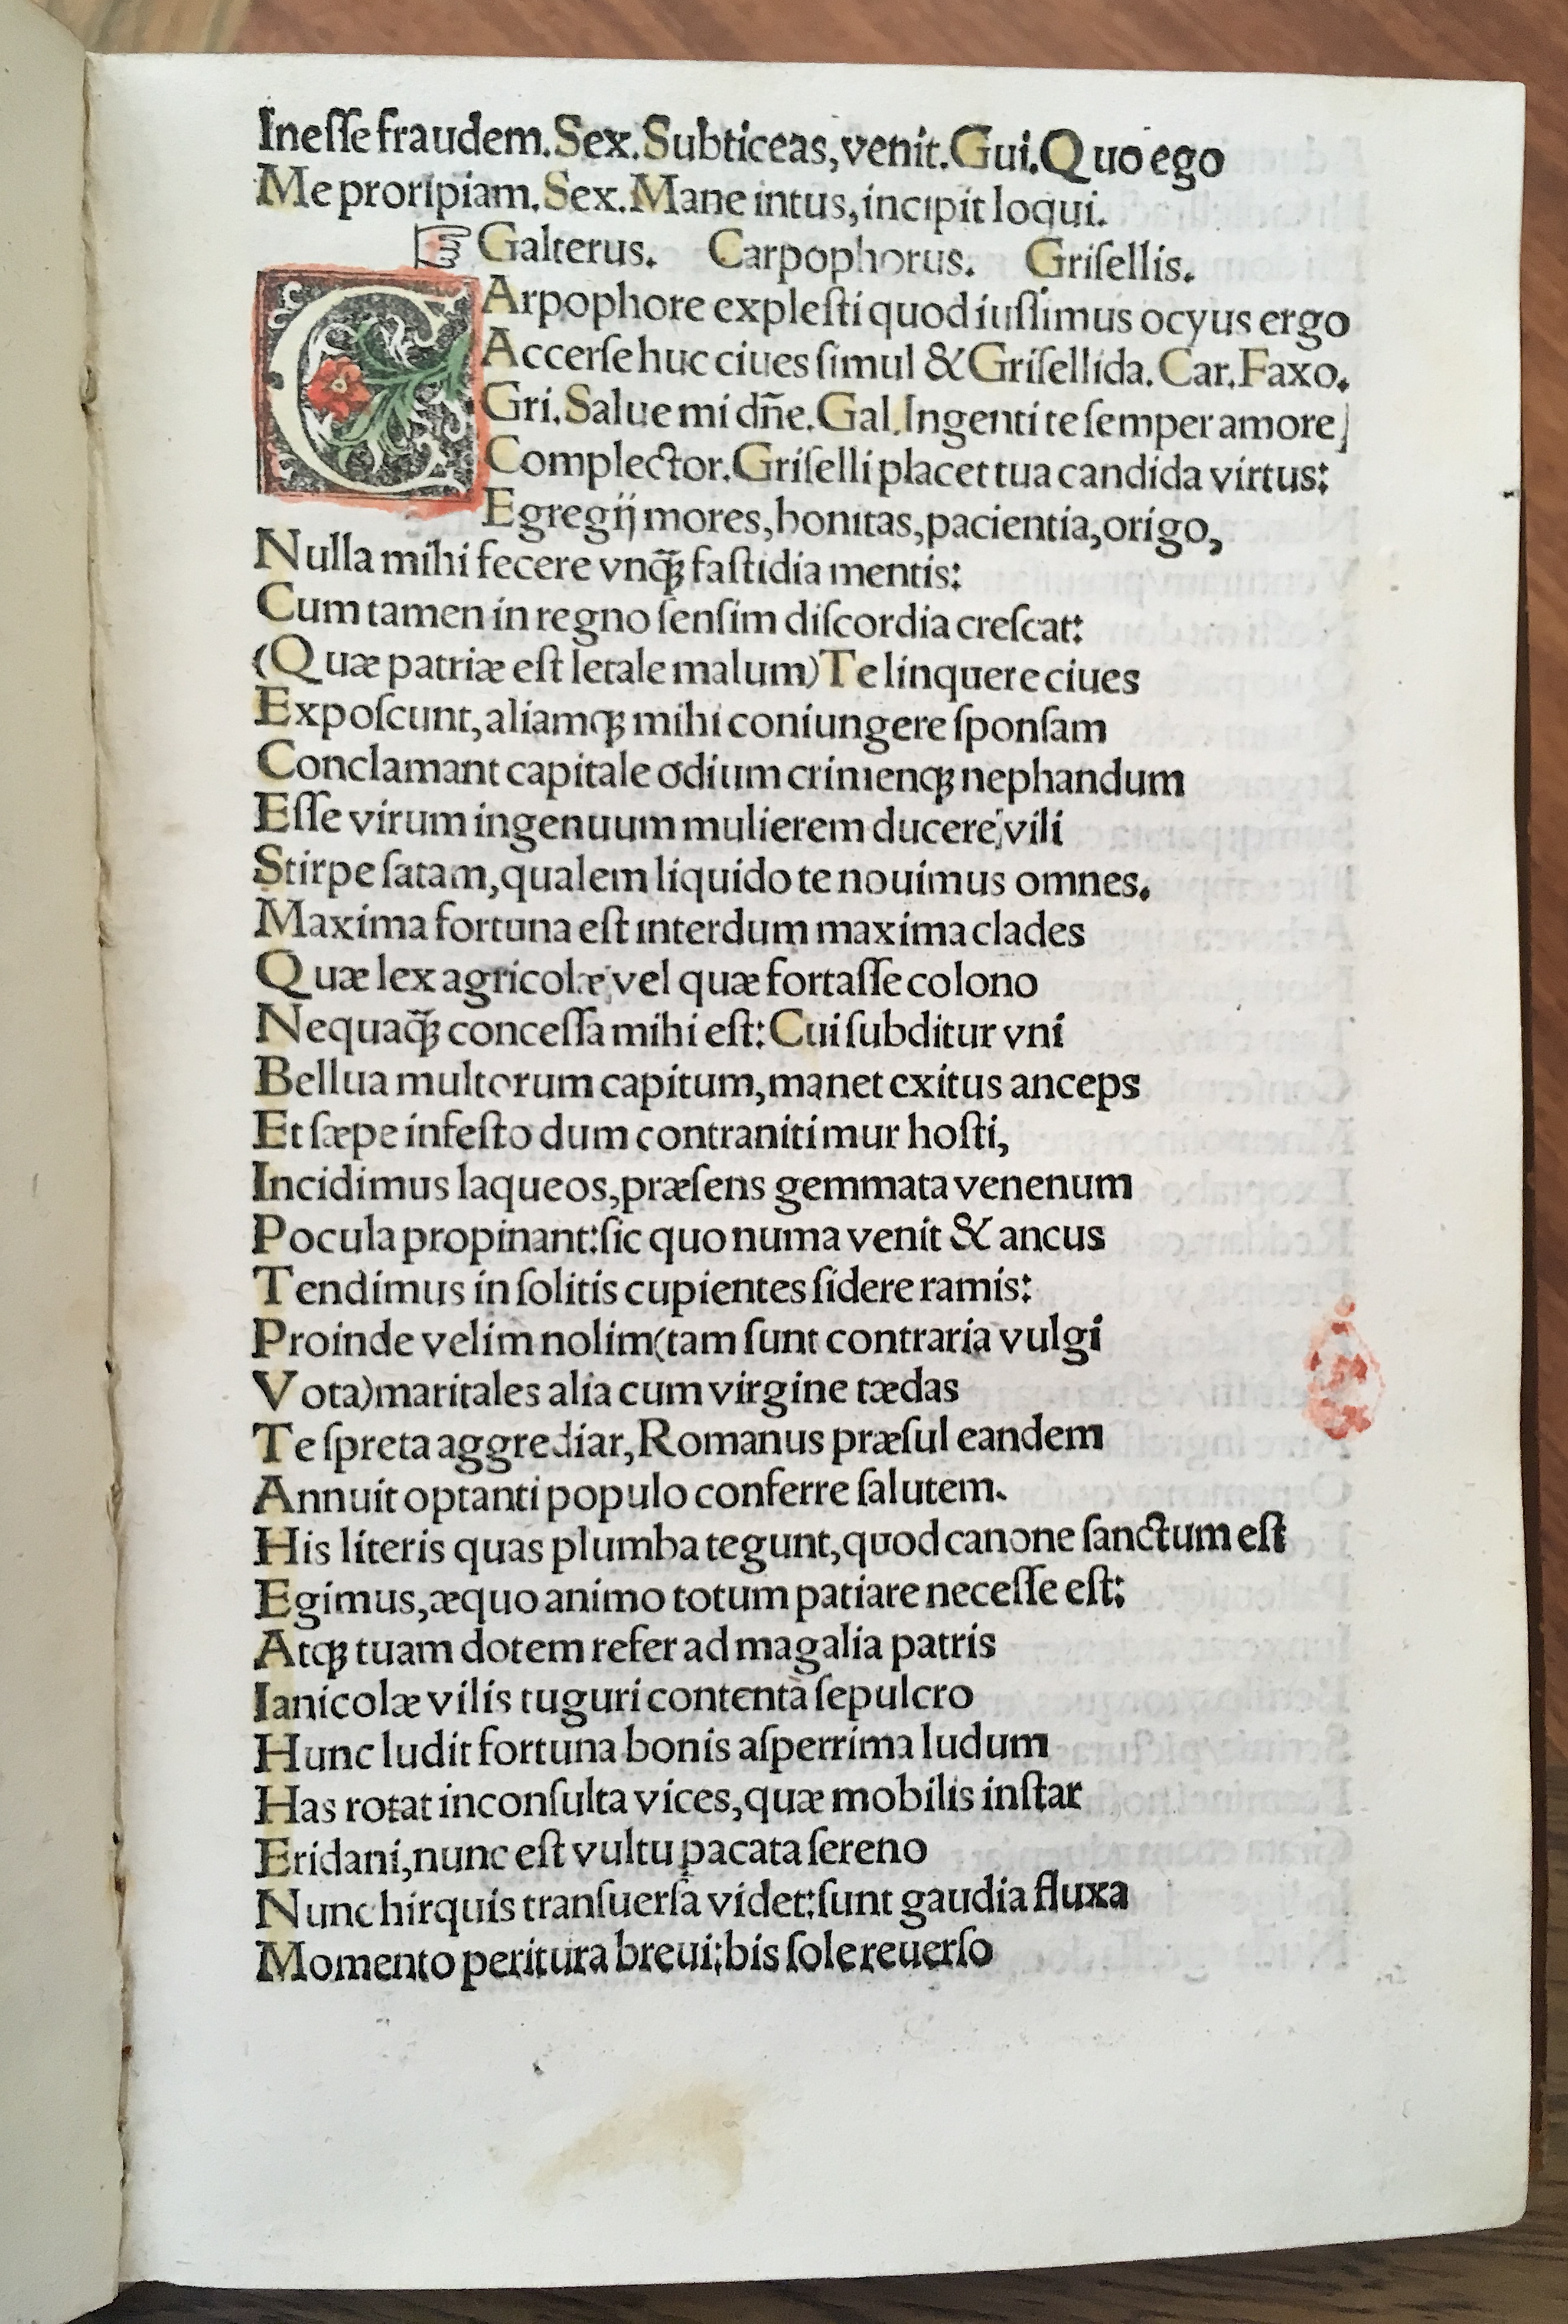 Ineſſe fraudem. Sex. Subticeas, venit. Gui. Quo ego
Me proripiam. Sex. Mane intus, incipit loqui.
☞ Galterus. Carpophorus. Griſellis.
CArpophore expleſti quod iuſſimus ocyus ergo
Accerſe huc ciues ſimul & Griſellida. Car. Faxo.
Gri. Salue mi dñe. Gal. Ingenti te ſemper amore
Complector. Griſelli placet tua candida virtus:
Egregij mores, bonitas, pacientia, origo,
Nulla mihi fecere vnq̃ꝫ faſtidia mentis:
Cum tamen in regno ſenſim diſcordia creſcat:
(Quæ patriæ eſt letale malum) Te linquere ciues
Expoſcunt, aliamqꝫ mihi coniungere ſponſam
Conclamant capitale odium crimenqꝫ nephandum
Eſſe virum ingenuum mulierem ducere vili
Stirpe ſatam, qualem liquido te nouimus omnes.
Maxima fortuna eſt interdum maxima clades
Quæ lex agricolæ vel quæ fortaſſe colono
Nequaq̃ꝫ conceſſa mihi eſt: Cui ſubditur vni
Bellua multorum capitum, manet exitus anceps
Et ſæpe infeſto dum contranitimur hoſti,
Incidimus laqueos, præſens gemmata venenum
Pocula propinant: ſic quo numa venit & ancus
Tendimus in ſolitis cupientes ſidere ramis:
Proinde velim nolim (tam ſunt contraria vulgi
Vota) maritales alia cum virgine tædas
Te ſpreta aggrediar, Romanus præſul eandem
Annuit optanti populo conferre ſalutem.
His literis quas plumba tegunt, quod canone ſanctum eſt
Egimus, æquo animo totum patiare neceſſe eſt:
Atqꝫ tuam dotem refer ad magalia patris
Ianicolæ vilis tuguri contenta ſepulcro
Hunc ludit fortuna bonis aſperrima ludum
Has rotat inconſulta vices, quæ mobilis inſtar
Eridani, nunc eſt vultu pacata ſereno
Nunc hirquis tranſuerſa videt: ſunt gaudia fluxa
Momento peritura breui: bis ſole reuerſo